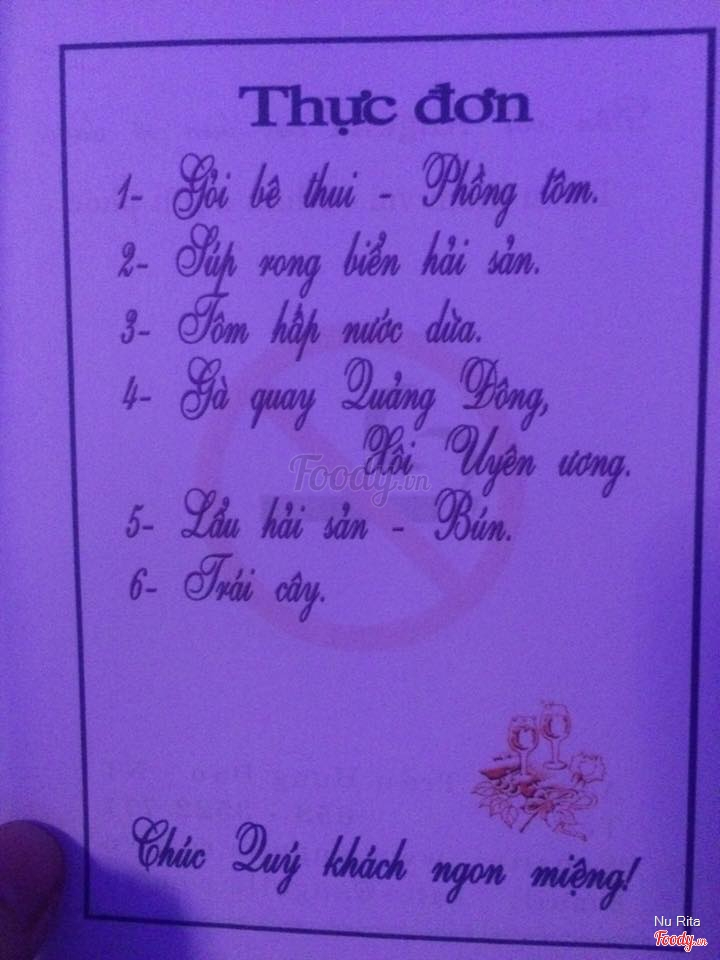 Thực đơn
1- Gỏi bê thui - Phồng tôm.
2- Súp rong biển hải sản.
3- Tôm hấp nước dừa.
4- Gà quay Quảng Đông,
Xôi Uyên ương.
5- Lẩu hải sản - Bún.
6- Trái cây.
Foody.vn
Chúc Quý khách ngon miệng!
Nu Rita
Foody.vn